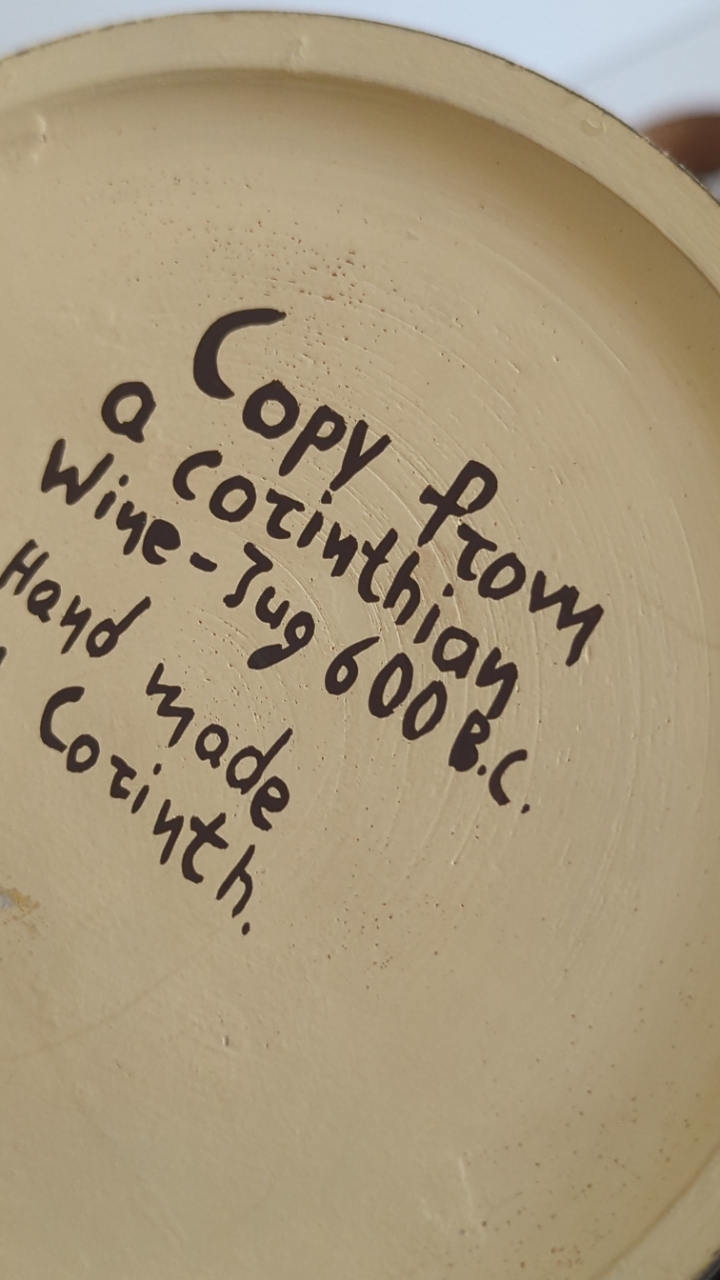 Copy from
a corinthian
Wine-Jug 600 B.C.
Hand made
Corinth.